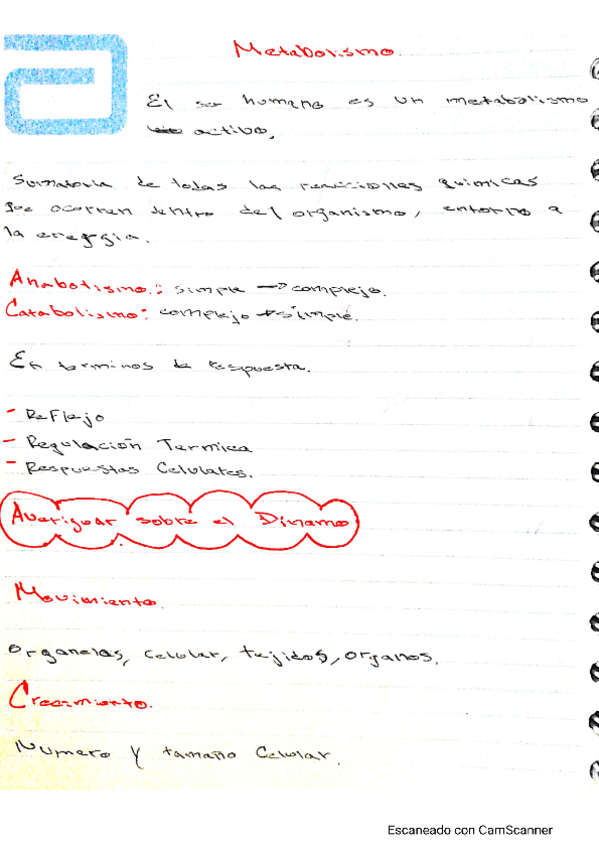 Metabolismo
El ser humano es un metabolismo
activo.
Sumatoria de todas las reacciones quimicas
que ocurren dentro del organismo, entorno a
la energia.
Anabolismo.: simple → complejo.
Catabolismo: complejo → simple.
En terminos de respuesta.
- Reflejo
- Regulación Termica
- Respuestas Celulares.
Averiguar sobre el Dinamo
Movimiento.
Organelas, Celular, tejidos, organos.
Crecimiento.
Numero y tamaño Celular.
Escaneado con CamScanner